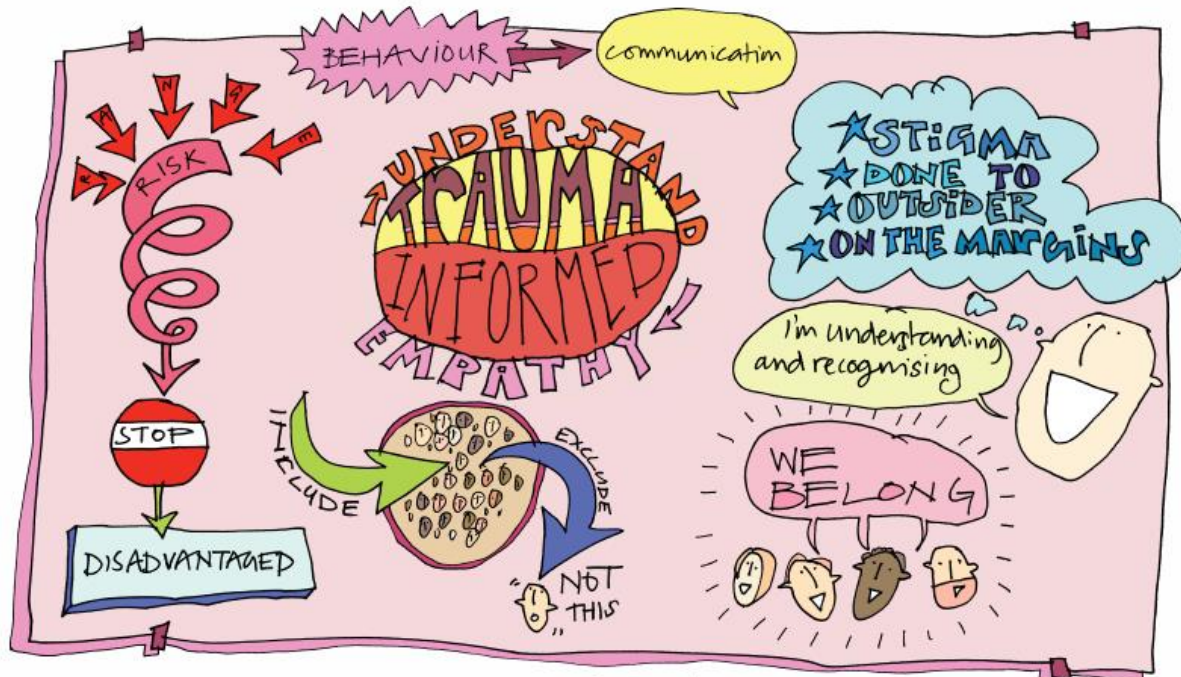 BEHAVIOUR
communication
R A N S E
RISK
STOP
DISADVANTAGED
UNDERSTAND
TRAUMA
INFORMED
EMPATHY
INCLUDE
EXCLUDE
NOT
THIS
STIGMA
DONE TO
OUTSIDER
ON THE MARGINS
I'm understanding
and recognising
WE
BELONG